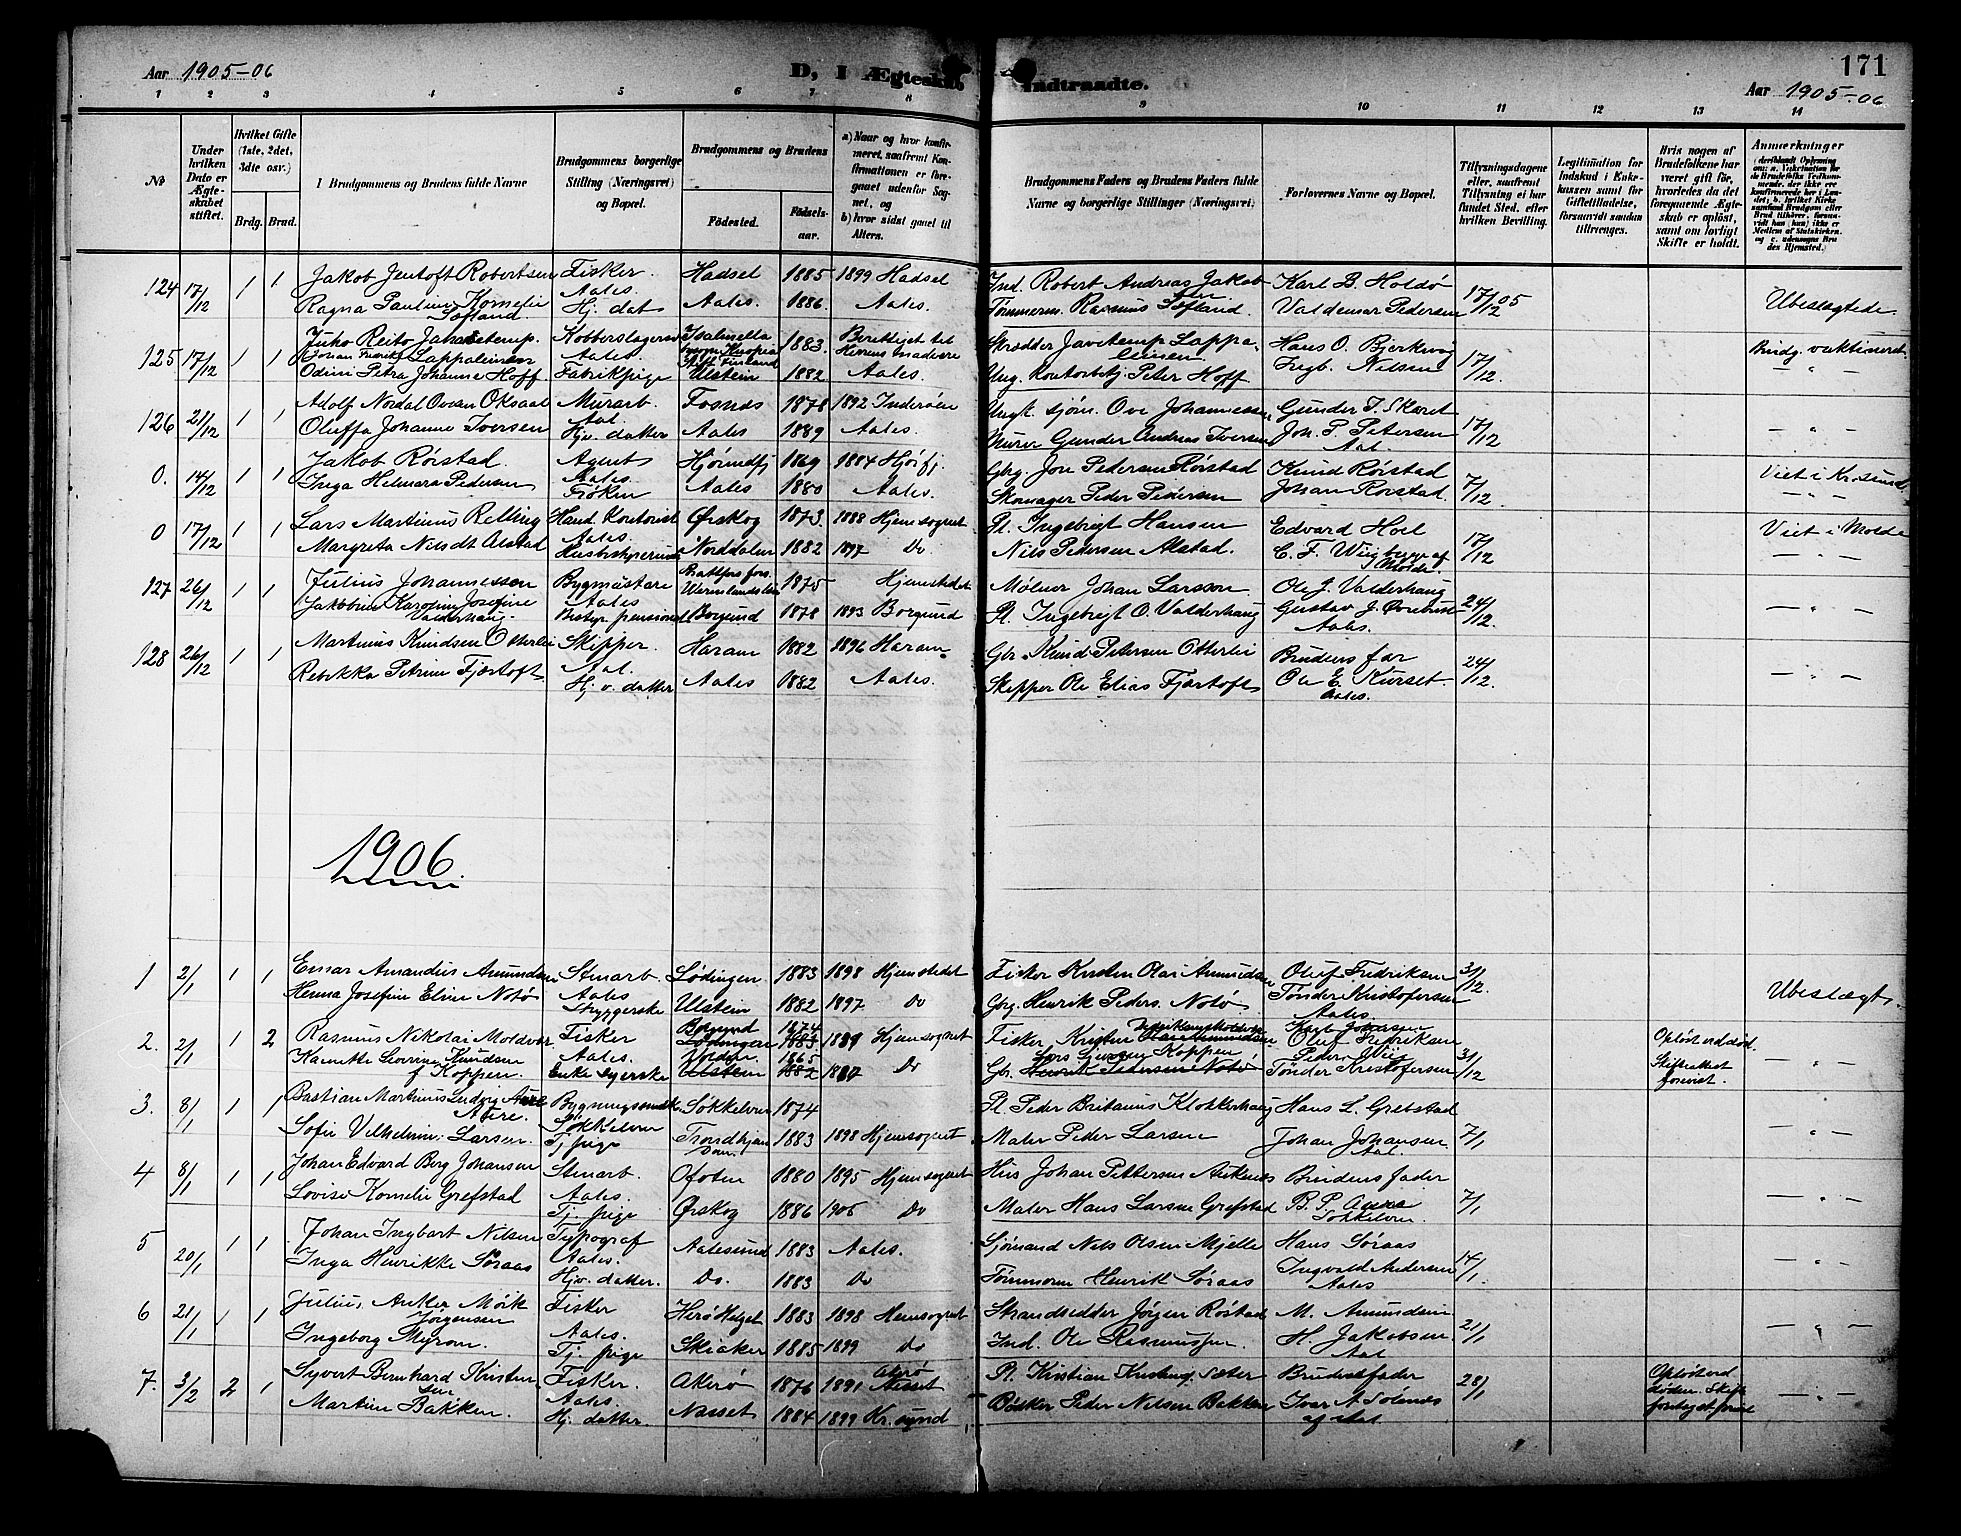 171
Aar 1905-06
D, I Ægteskab Indtraadte.
Aar 1905-06
1 2 3 4 5 6 7 8 9 10 11 12 13 14
Nr.
Under hvilken Dato er Ægteskabet stiftet.
Hvilket Gifte (1ste, 2det, 3dte osv.)
Brdg. Brud.
I Brudgommens og Brudens fulde Navne
Brudgommens borgerlige Stilling (Næringsvei) og Bopæl.
Brudgommens og Brudens
Fødested. Fødselsaar.
a) Naar og hvor konfirmeret, saafremt Konfirmationen er foregaaet udenfor Sognet, og
b) hvor sidst gaaet til Alters.
Brudgommens Faders og Brudens Faders fulde Navne og borgerlige Stillinger (Næringsvei).
Forlovernes Navne og Bopæl.
Tillysningsdagene eller, saafremt Tillysning ei har fundet Sted, efter hvilken Bevilling.
Legitimation for Indskud i Enkekassen samt for Giftetilladelse, forsaavidt saadan tiltrænges.
Hvis nogen af Brudefolkene har været gift før, hvorledes da det foregaaende Ægteskab er opløst, samt om lovligt Skifte er holdt.
Anmerkninger
124 17/12 1 1 Jakob Jentoft Robertsen Fisker. Hadsel 1885 1899 Hadsel Ind. Robert Andreas Jakobsen Karl B. Holdø 17/12 05 Ubeslægtede
Aales.
Ragna Pauline Kornelie Løfland. Hj. dat Aales. 1886 Aales. Tømmerm. Rasmus Løfland. Valdemar Pedersen
125 17/12 1 1 Kobberslager 1883 Berettiget tet Skrædder Hans O. Bjerkevig 17/12 Brudg. vaktioneret
Johan Fredrik Lappaleinen Aales.
Odine Petra Johanne Hoff Fabrikpige Ulstein 1882 Aales. Ung. Kontorbetj. Peter Hoff Ingb. Nilsen — " —
126 21/12 1 1 Adolf Nordal Ovean Oksaal Murarb. Fosnes 1878 1892 Inderøen Ungk. sjøm. Ove Johannessen Gunder J. Skaret 17/12 — " —
Aal.
Oluffa Johanne Iversen Hjv. datter Aales 1889 Aales. Murer Gunder Andreas Iversen Joh. P. Petersen Aal.
0. 14/12 1 1 Jakob Rørstad. Agent Hjørundfj 1869 1884 Hjørfj. Gbg. Jon Pedersen Rørstad Knud Rørstad 7/12 Viet i Kr.sund
Aales.
Inga Helmara Pedersen Frøken Aales 1880 Aales. Skomager Peder Pedersen Johan Rørstad. — " —
0 17/12 1 1 Lars Martinus Relling Hand. Kontorist Ørskog 1873. 1888 Hjemsognet Pl. Ingebrigt Hansen Edvard Hoel 17/12 Viet i Molde
Aales.
Margreta Nilsdt Alstad Husbestyrerinde Norddalen 1882 1897 Do Nils Pedersen Alstad. C. F. Wiig begge af Molde. — " —
127 26/12 1 1 Julius Johannessen Bygmästare 1875 Hjemstedet Mølner Johan Larsson Ole J. Valderhaug 24/12. — " —
Aales
Jakobine Karoline Josefine Valderhaug. Bestyr. pensionat Borgund 1878 1893 Borgund Pl. Ingebrigt O. Valderhaug Gustav J. Aales.
128 26/12 1 1 Martinus Knudsen Otterlei Skipper. Haram 1882 1896 Haram Gbr. Knud Petersen Otterlei Brudens far 24/12. — " —
Aal.
Rebekka Petrine Fjørtoft. Hj. v. datter Aales 1882 Aales. Skipper Ole Elias Fjørtoft Ole E. Kurset. Aales.
1906.
1 2/1 1 1 Einar Amandius Amundsen Stenarb. Lødingen 1883 1898 Hjemstedet Fisker Kristen Olai Amundsen Oluf Fredriksen 31/12 Ubeslægt.
Aales
Henna Josefine Eline Notø Strygerske Ulstein 1882 1897 Do Gbg. Henrik Peders. Notø Tønder Kristofersen Aales.
2. 2/1 1 2 Rasmus Nikolai Moldvær Fisker Borgund 1874 1889 Hjemsognet Fisker Karl Johansen 31/12 Opløst ved død. Skifteattest forevist. — " —
Lødingen 1883 Olai Amundsen Oluf Fredriksen
Aales. Norddn. 1865 Lars Koppen Peder Wiig
Knudsen f Koppen. Enke Syerske Ulstein 1882 Do Gb. Henrik Pedersen Notø Tønder Kristofersen
3. 8/1 1 1 Bastian Martinus Ludvig Aure Sökkelven 1874 Pl. Peder Britanus Klokkerhaug Hans L. Grebstad 7/1 — " —
Sökkelven
Sofie Vilhelmine Larsen. Tj pige Trondhjem 1883 1898 Hjemsognet Maler Peder Larsen Johan Johansen Aal.
4 8/1 1 1 Johan Edvard Berg Johansen Stenarb. Ofoten 1880 1895 Hjemsognet Hus Johan Pettersen Brudens fader 7/1 — " —
Aales.
Lovise Kornelie Grefstad Tj. pige Ørskog 1886 1905 Do Maler Hans Larsen Grefstad B. P. Aure Sökkelven.
5 20/1 1 1 Johan Ingbart Nilsen Typograf Aalesund 1883 Aales. Sjømand Nils Olsen Mjelle Hans Søraas 14/1. — " —
Aales.
Inga Henrikke Søraas Hjv. datter. Do. 1883 Do Tømmerm Henrik Søraas Ingvald Andersen Aales
6 21/1 1 1 Julius Anker Mørk Jørgensen Fisker Herø Helgel 1883 1898 Hemsognet Strandsedder Jørgen Røstad M. Amundsen 21/1 — " —
Aales.
Ingeborg Myrom. Tj. pige Skiaker 1885 1899 Do Ind. Ole Rasmussen H. Jakobsen Aal
7. 3/2 2 1 Syvert Bernhard Kristensen Fisker. Akerø 1876 1891 Akerø Nesset Pl. Kristian Sæter Brudensfader 28/1 Opløst ved døden. Skift — " —
Aales.
Martine Bakken. Hj. datter. Nasset 1884 1899 Kr.sund Bøsker Peder Nilsen Bakken Ivar A Solnes af Aal